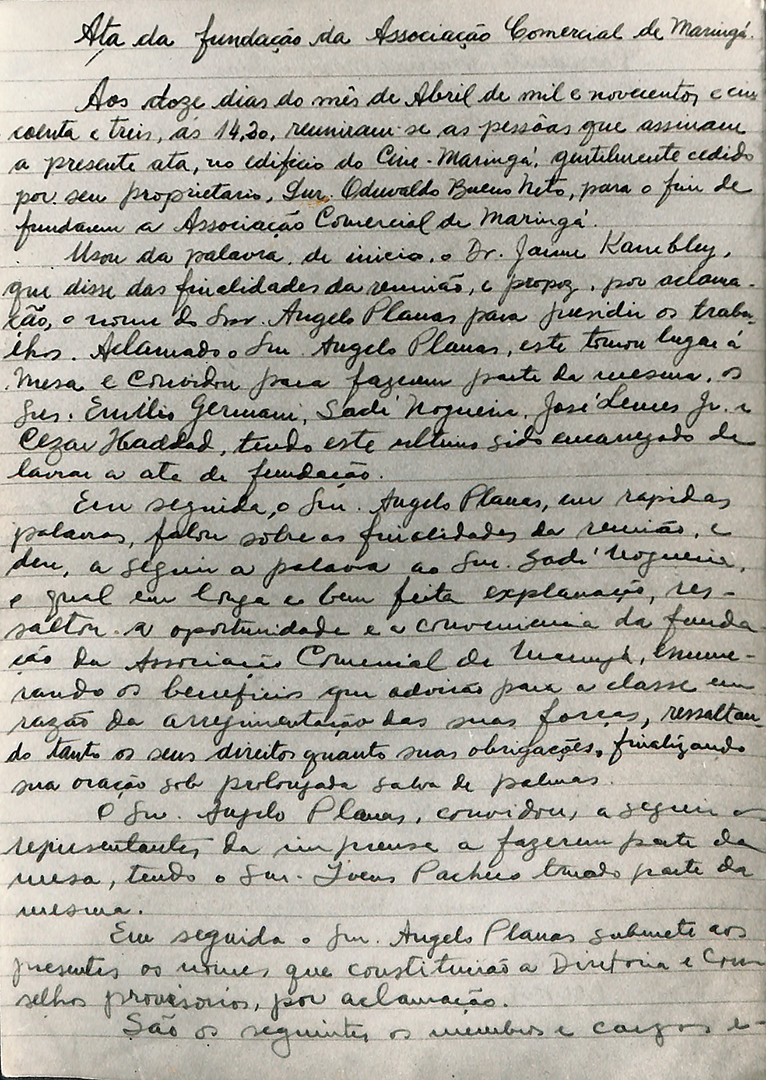 Ata da fundação da Associação Comercial de Maringá.
Aos doze dias do mês de Abril de mil e novecentos e cin
coenta e treis, ás 14,30, reuniram-se as pessôas que assinam
a presente ata, no edificio do Cine-Maringá, gentilmente cedido
por seu proprietario, Snr. Odwaldo Bueno Neto, para o fim de
fundarem a Associação Comercial de Maringá.
Usou da palavra, de inicio, o Dr. Jaime Kambley,
que disse das finalidades da reunião, e propoz, por aclama-
ção, o nome do Snr. Angelo Planas para presidir os traba-
lhos. Aclamado o Snr. Angelo Planas, este tomou lugar á
Mesa e Convidou para fazerem parte da mesma, os
Snrs. Emilio Germani, Sadí Nogueira, José Lemes Jr. e
Cezar Haddad, tendo este ultimo sido encarregado de
lavrar a ata de fundação.
Em seguida, o Snr. Angelo Planas, em rapidas
palavras, falou sobre as finalidades da reunião, e
deu, a seguir a palavra ao Snr. Sadí Nogueira,
o qual em longa e bem feita explanação, res-
saltou a oportunidade e a conveniencia da funda-
ção da Associação Comercial de Maringá, enume-
rando os beneficios que advirão para a classe em
razão da arregimentação das suas forças, ressaltan-
do tanto os seus direitos quanto suas obrigações, finalizando
sua oração sob prolongada salva de palmas.
O Snr. Angelo Planas, convidou, a seguir os
representantes da imprensa a fazerem parte da
mesa, tendo o Snr. Ivens Pacheco tomado parte da
mesma.
Em seguida o Snr. Angelo Planas submete aos
presentes os nomes que constituirão a Diretoria e Con
selhos provisorios, por aclamação.
São os seguintes os membros e cargos e-